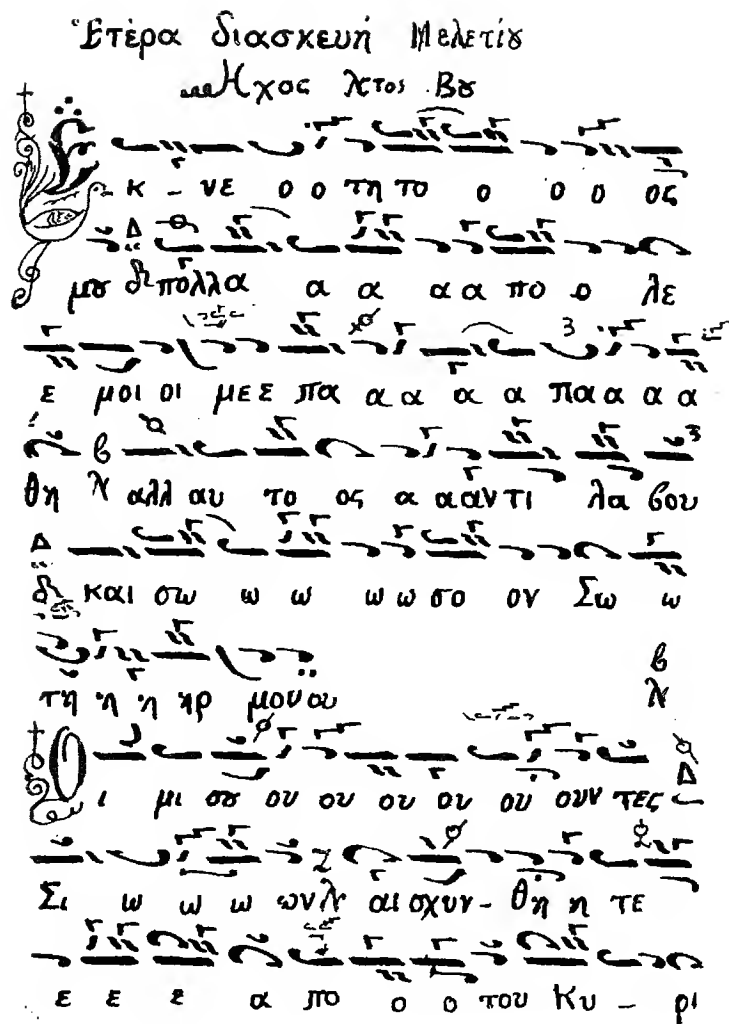 Ἑτέρα διασκευή Μελετίου
Ἦχος λτος Βου
Ε κ - νε ο ο τη το ο ο ο ος
μου πολλα α α α α πο ο λε
ε μοι οι με ε πα α α α α πα α α α
θη αλλ αυ το ος α α αντι λα βου
και σω ω ω ω ω σο ον Σω ω
τη η η ηρ μου ου
Ο ι μι σου ου ου ου ου ου ουν τες
Σι ω ω ω ων αι σχυν - θη η τε
ε ε ε α πο ο ο του Κυ - ρι